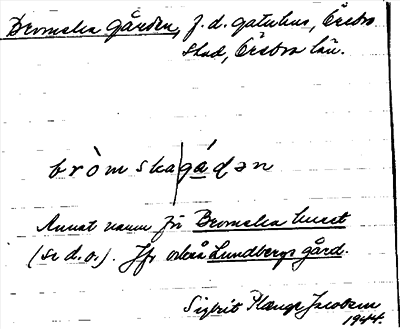 Bromska gården, f.d. gatuhus, Örebro
stad, Örebro län.
bròmskagá̱dən
Annat namn för Bromska huset
(se d.o.). Jfr också Lundbergs gård.
Sigbrit Plænge Jacobson
1944.